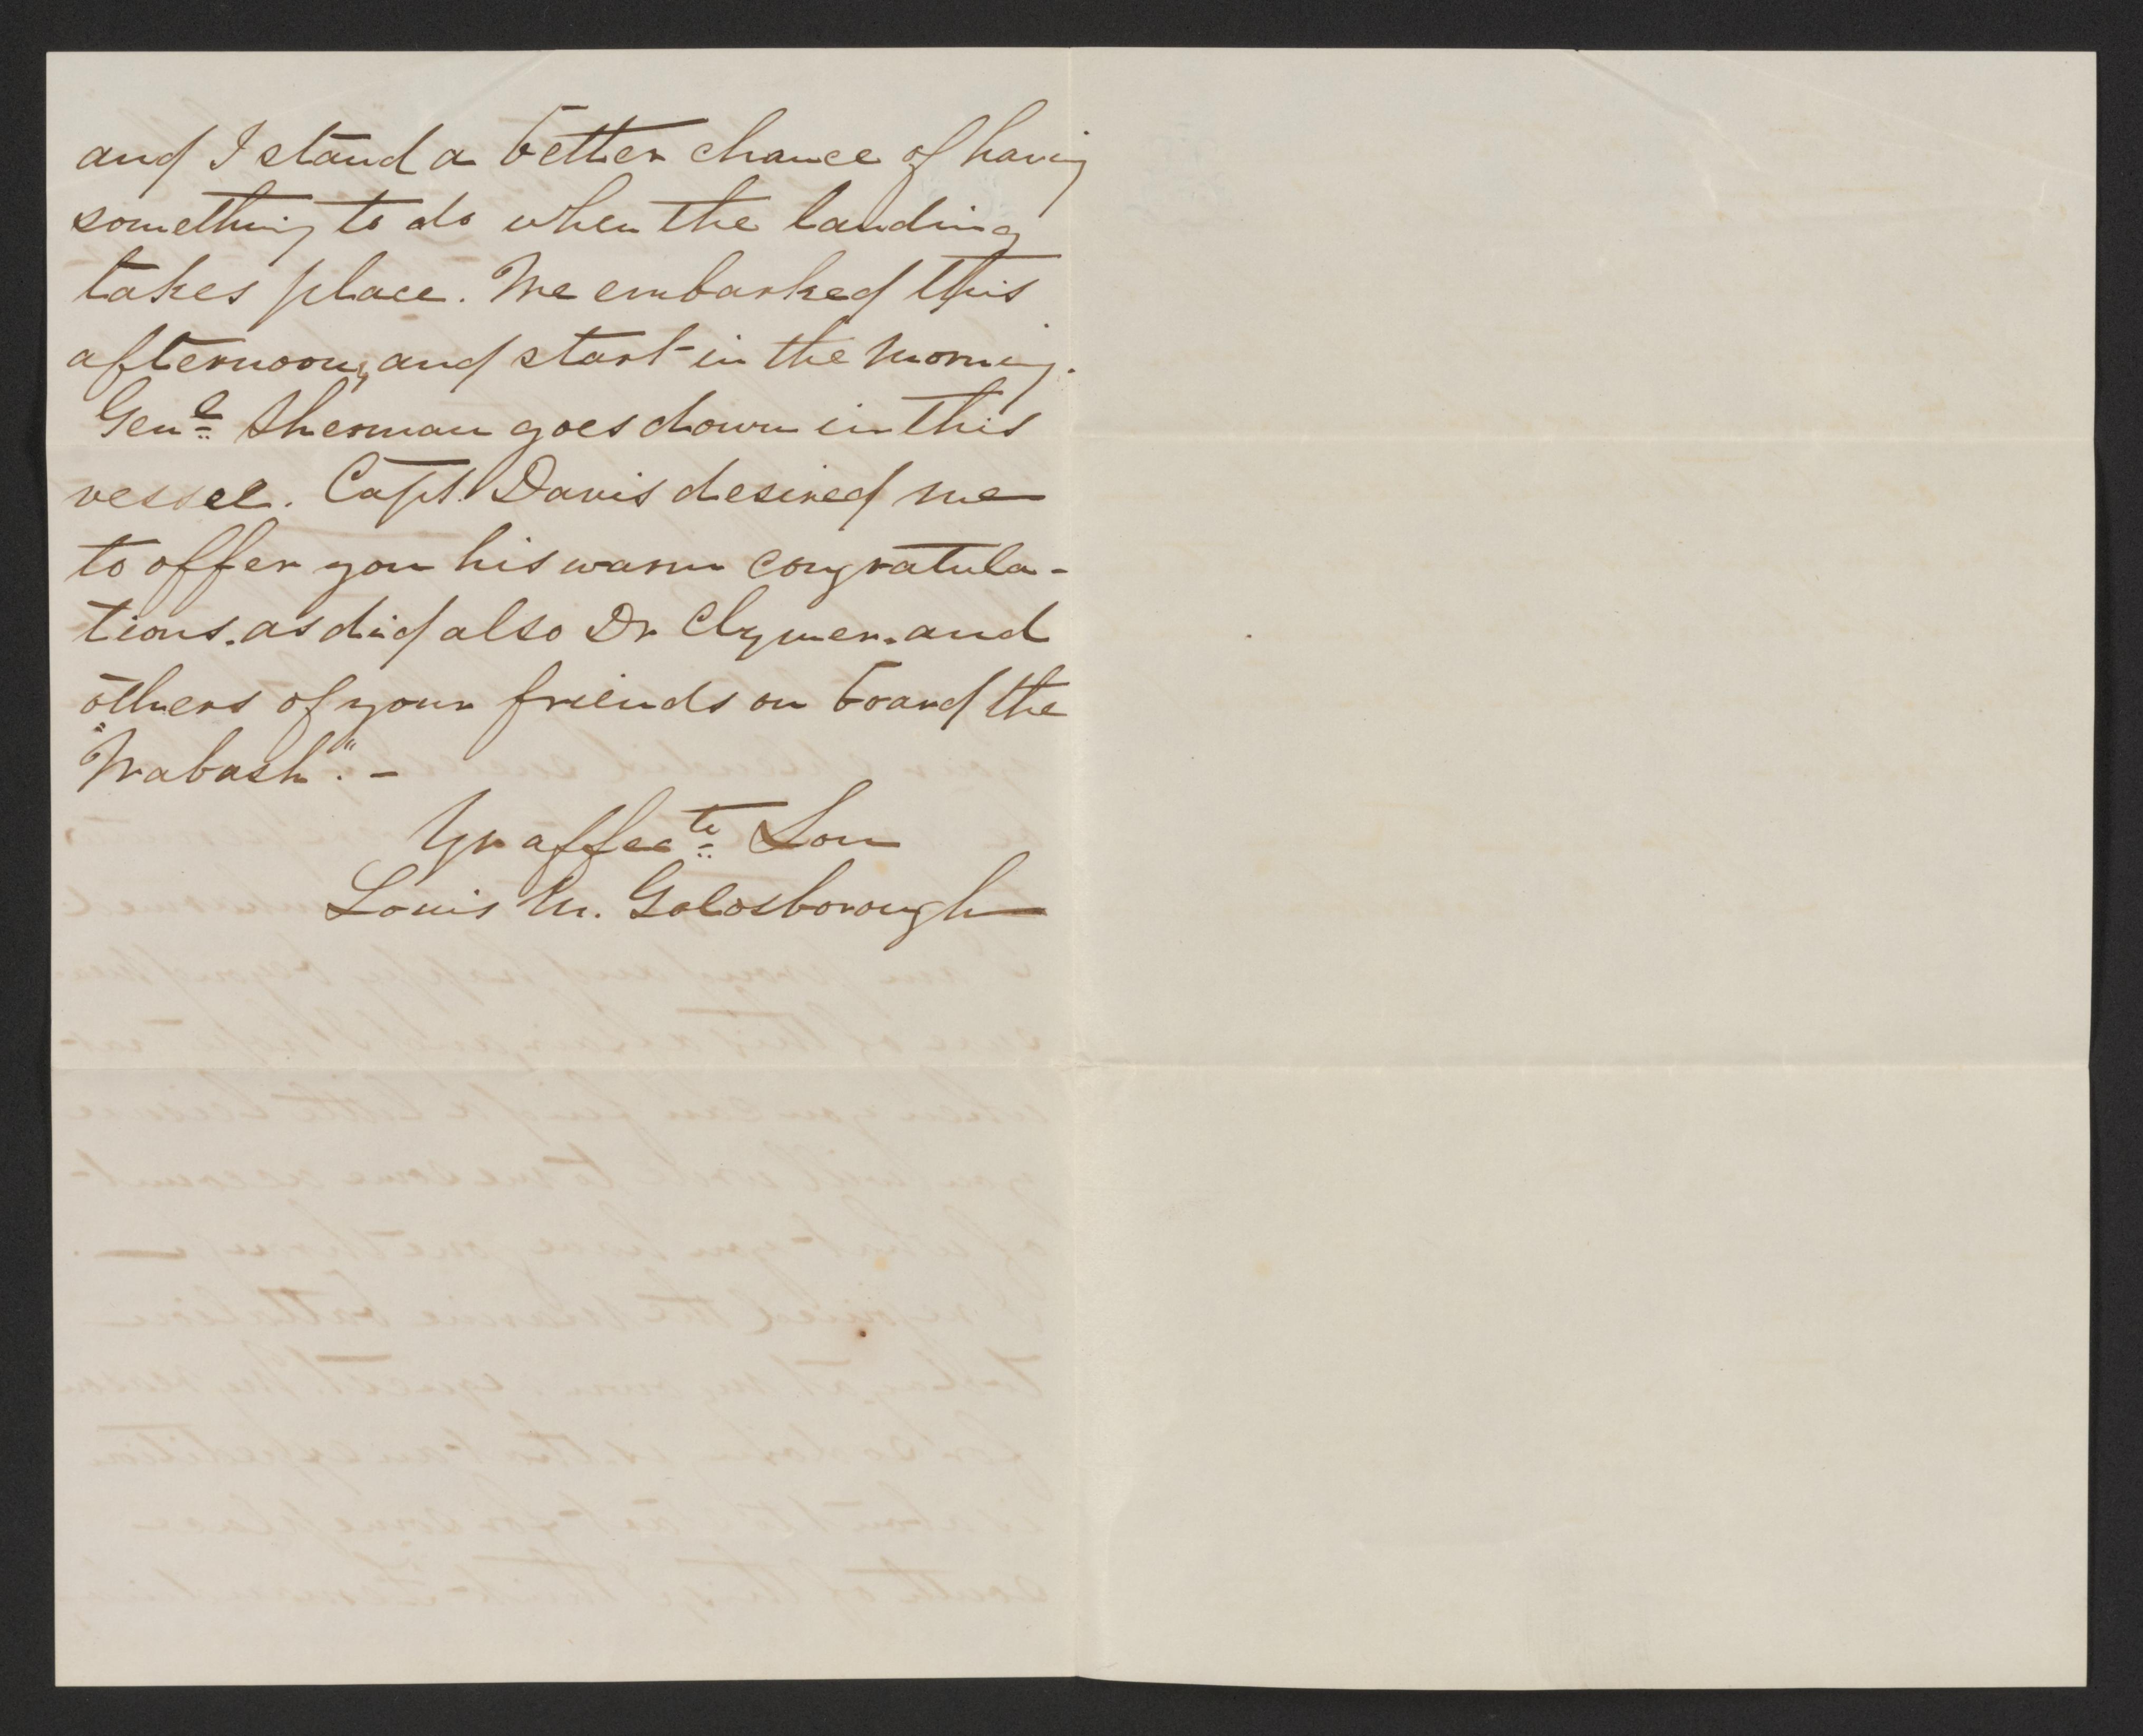 and I stand a better chance of having
something to do when the landing
takes place. We embarked this
afternoon, and start in the morning.
Genl Sherman goes down in this
vessel. Capt. Davis desired me
to offer you his warm congratula-
tions, as did also Dr Clymer, and
others of your friends on board the
"Wabash". -
Yr affecte Son
Louis M. Goldsborough